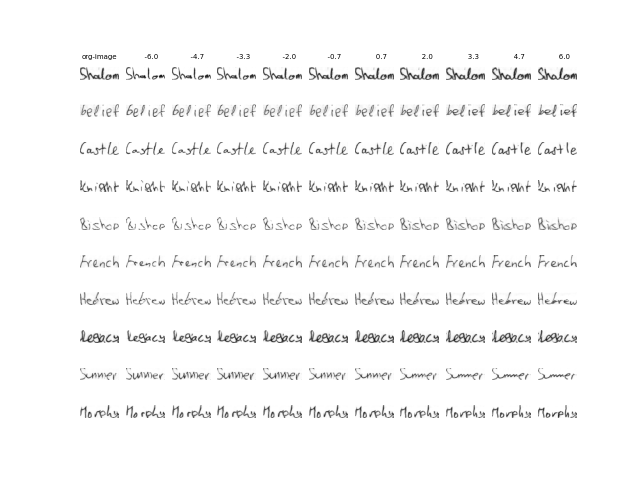 org-image -6.0 -4.7 -3.3 -2.0 -0.7 0.7 2.0 3.3 4.7 6.0
Shalom Shalom Shalom Shalom Shalom Shalom Shalom Shalom Shalom Shalom Shalom
belief belief belief belief belief belief belief belief belief belief belief
Castle Castle Castle Castle Castle Castle Castle Castle Castle Castle Castle
Knight Knight Knight Knight Knight Knight Knight Knight Knight Knight Knight
Bishop Bishop Bishop Bishop Bishop Bishop Bishop Bishop Bishop Bishop Bishop
French French French French French French French French French French French
Hebrew Hebrew Hebrew Hebrew Hebrew Hebrew Hebrew Hebrew Hebrew Hebrew Hebrew
Legacy Legacy Legacy Legacy Legacy Legacy Legacy Legacy Legacy Legacy Legacy
Summer Summer Summer Summer Summer Summer Summer Summer Summer Summer Summer
Morphy Morphy Morphy Morphy Morphy Morphy Morphy Morphy Morphy Morphy Morphy